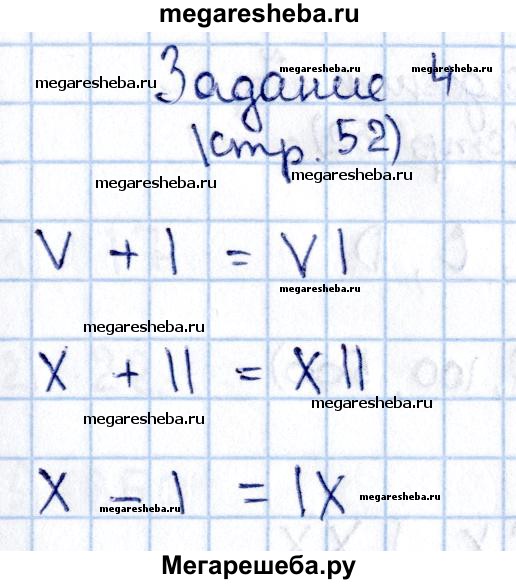 megaresheba.ru
Задание 4
megaresheba.ru
megaresheba.ru
(стр. 52)
megaresheba.ru
megaresheba.ru
V + I = VI
megaresheba.ru
megaresheba.ru
X + II = XII
megaresheba.ru
megaresheba.ru
X - I = IX
megaresheba.ru
megaresheba.ru
Мегарешеба.ру